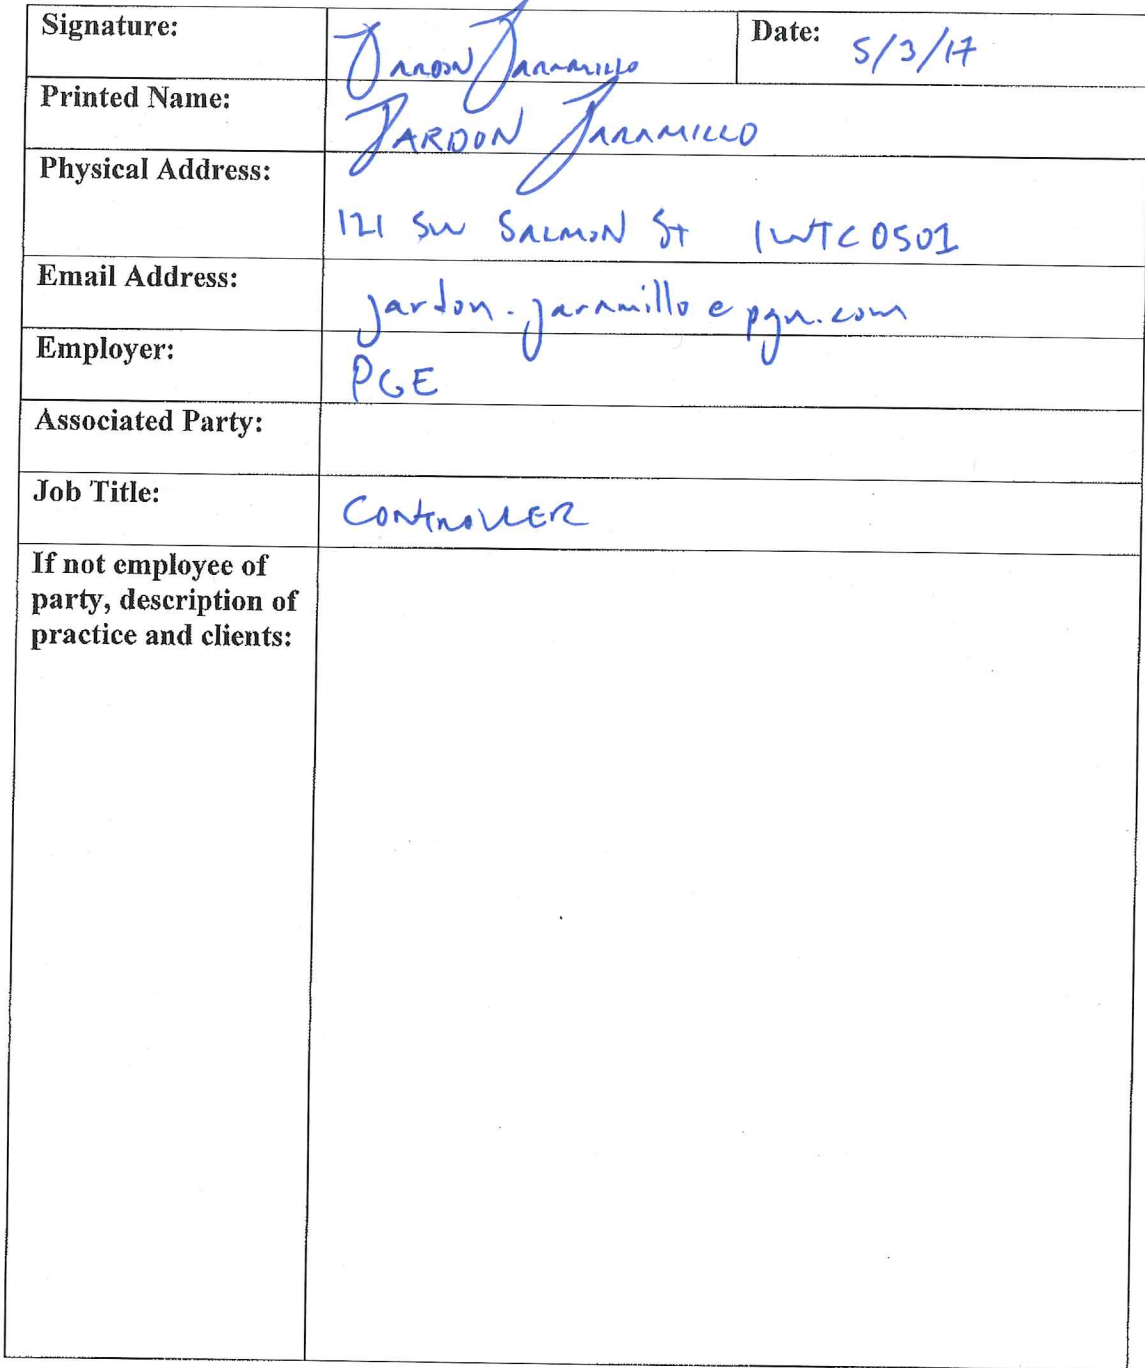 Signature: Jardon Jaramillo Date: 5/3/17
Printed Name: JARDON JARAMILLO
Physical Address:
121 SW SALMON St 1WTC0501
Email Address: jardon.jaramillo@pgn.com
Employer: PGE
Associated Party:
Job Title: CONTROLLER
If not employee of
party, description of
practice and clients: